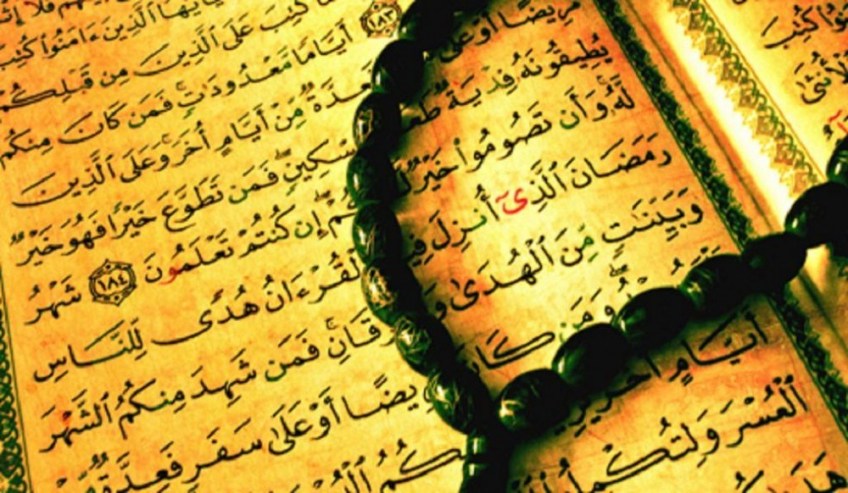 فَلَا
يَٰٓأَيُّهَا ٱلَّذِينَ ءَامَنُوا۟ كُتِبَ
كُتِبَ عَلَى ٱلَّذِينَ مِن قَبْلِكُمْ
١٨٣ أَيَّامًا مَّعْدُودَٰتٍ فَمَن كَانَ مِنكُم
مَّرِيضًا أَوْ عَلَىٰ عِدَّةٌ مِّنْ أَيَّامٍ أُخَرَ وَعَلَى ٱلَّذِينَ
يُطِيقُونَهُۥ فِدْيَةٌ سْكِينٍ فَمَن تَطَوَّعَ خَيْرًا فَهُوَ خَيْرٌ
لَّهُۥ وَأَن تَصُومُوا۟ خَيْرٌ إِن كُنتُمْ تَعْلَمُونَ ١٨٤ شَهْرُ
رَمَضَانَ ٱلَّذِىٓ أُنزِلَ فِي ٱلْقُرْءَانُ هُدًى لِّلنَّاسِ
وَبَيِّنَٰتٍ مِّنَ ٱلْهُدَىٰ وَ رْقَانِ فَمَن شَهِدَ مِنكُمُ ٱلشَّهْرَ
وَمَن كَا يضًا أَوْ عَلَىٰ سَفَرٍ فَعِدَّةٌ
أَيَّامٍ أُخَرَ يُرِي بِكُمُ
ٱلْعُسْرَ وَلِتُكْمِلُوا۟
كُتِبَ
ٱلْأُنثَىٰ